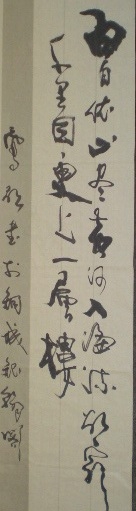 白日依山盡黃河入海流欲窮
千里目更上一層樓
書於銅城